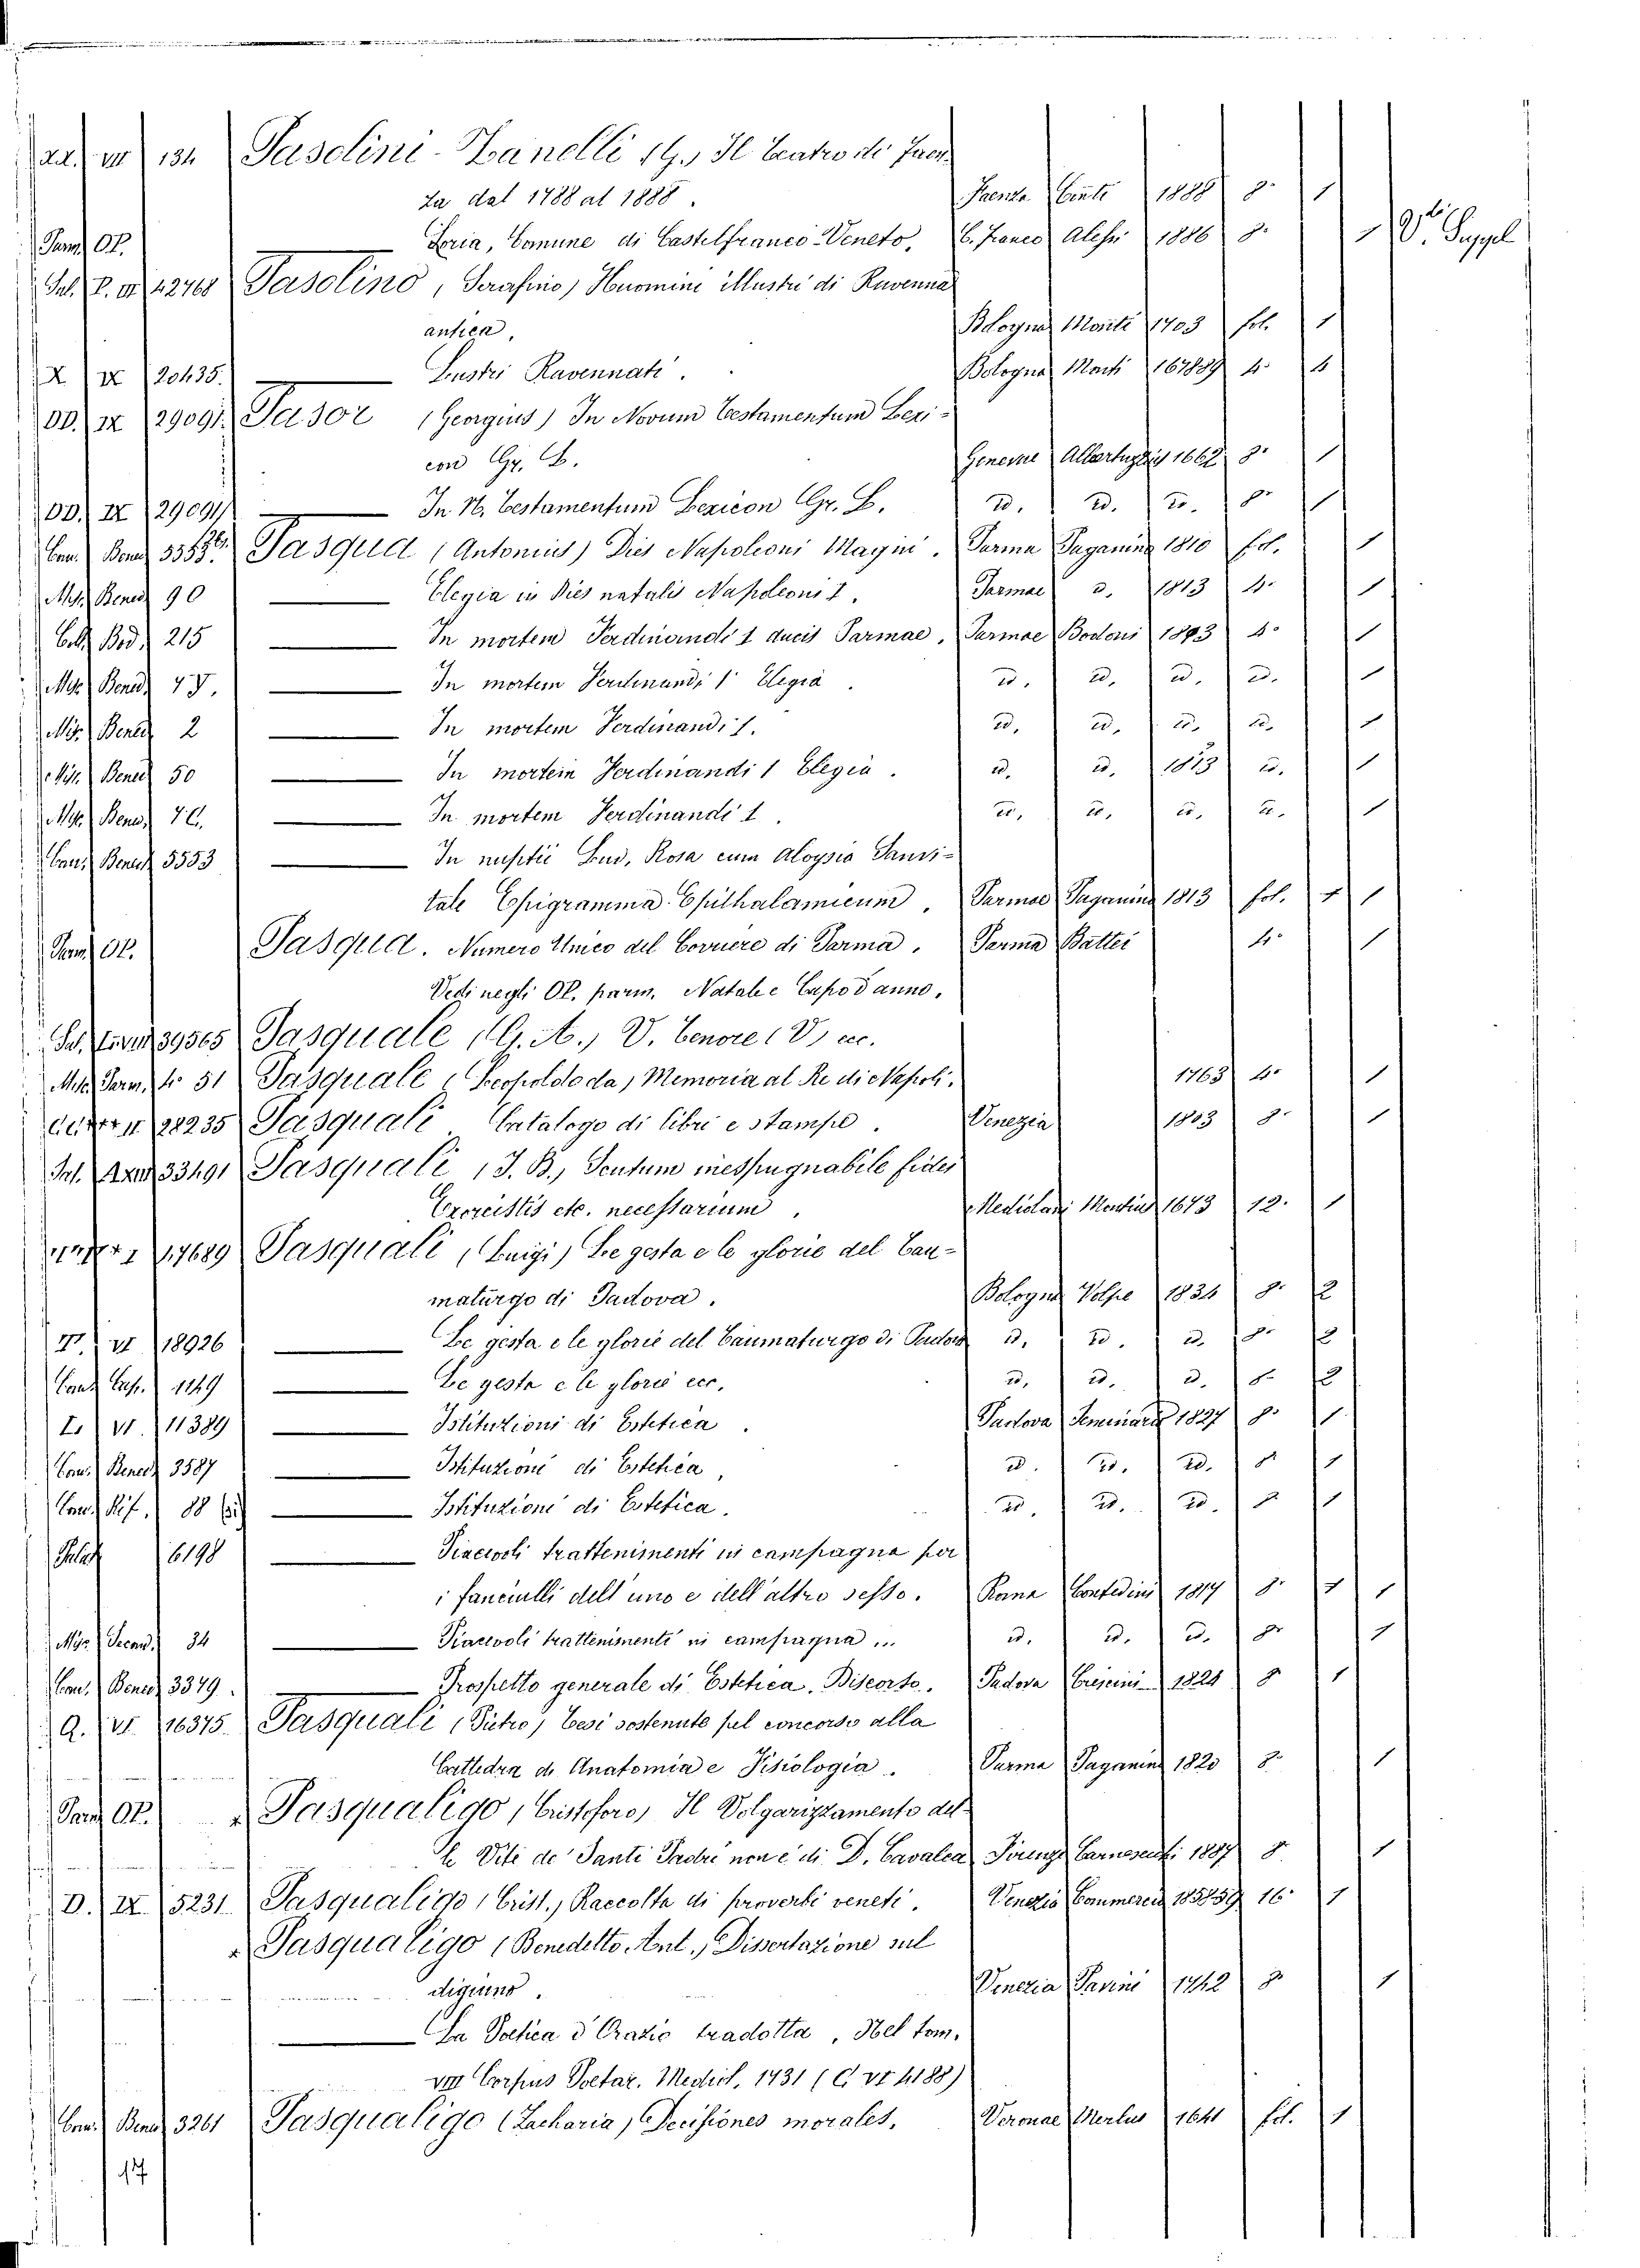 VII 134 Pasolini-Zanelli (G.) Il Teatro di Faen-
za dal 1788 al 1888. Faenza Conti 1888 8. 1
Parm. Op. Loria, Comune di Castelfranco-Veneto, C. Franco Alessi 1886 8. 1 V. Suppl
Pal. P. III 42768 Pasolino, Serafino) Huomini illustri di Ravenna
antica, Bologna Monti 1703 fol. 1
X IX 20435. Lustri Ravennati. Bologna Monti 167889 4. 4
DD. IX 29091. Pasor (Georgius) In Novum Testamentum Lexi-
con Gr. L. Genevae 1662 8. 1
DD. IX 29091/ In N. Testamentum Lexicon Gr. L. id. id. id. 8. 1
Pasqua (Antonius) Dies Napoleoni Magni. Parma Paganino 1810 fol. 1
Misc. Bened. 90 Elegia in Dies natalis Napoleonis I. Parmae id. 1813 4. 1
Coll. Bod. 215 In mortem Ferdinandi I ducis Parmae, Parmae Bodoni 1803 4. 1
Misc. Bened. In mortem Ferdinandi I Elegia. id. id. id. id. 1
Misc. Bened. 2 In mortem Ferdinandi I. id. id. id. id. 1
Misc. Bened. 50 In mortem Ferdinandi I Elegia. id. id. 1813 id. 1
Misc. Bened. In mortem Ferdinandi I. id. id. id. id. 1
Cam. Bened. 5553 In nuptii Lud. Rosa cum Aloysia Sanvi-
tale Epigramma Epithalamicum. Parmae Paganino 1813 fol. 1 1
Parm. Op. Pasqua. Numero Unico del Corriere di Parma. Parma Battei 4. 1
Vedi negli Op. parm. Natale e Capo d'anno.
39565 Pasquale (G. A.) V. Tenore (V) ecc.
Misc. Parm. 4º 51 Pasquale (Leopoldo da) Memoria al Re di Napoli, 1763 4. 1
28235 Pasquali. Catalogo di libri e stampe. Venezia 1803 8. 1
33491 Pasquali (J. B.) Scutum inespugnabile fidei
Exorcistis etc. necessarium. Mediolani 1673 12. 1
17689 Pasquali (Luigi) Le gesta e le glorie del Tau-
maturgo di Padova. Bologna Volpe 1834 8. 2
VI 18926 Le gesta e le glorie del Taumaturgo di Padova id. id. id. 8. 2
Cam. Cap. 1149 Le gesta e le glorie ecc. id. id. id. 8. 2
L. VI. 11389 Istituzioni di Estetica. Padova Seminario 1827 8. 1
Cam. Bened. 3587 Istituzioni di Estetica, id. id. id. 8 1
Cam. Rif. 88 Istituzioni di Estetica. id. id. id. 8. 1
Palat 6198 Piacevoli trattenimenti in campagna per
i fanciulli dell'uno e dell'altro sesso. Roma Contedini 1817 8. 1 1
Misc. 34 Piacevoli trattenimenti in campagna... id. id. id. 8. 1
Cam. Bened. 3349. Prospetto generale di Estetica. Discorso. Padova Crescini 1824 8 1
Q. VI. 16375. Pasquali (Pietro) Tesi sostenute pel concorso alla
Cattedra di Anatomia e Fisiologia. Parma Paganino 1820 8. 1
Parm. Op. Pasqualigo (Cristoforo) Il Volgarizzamento del-
le Vite de' Santi Padri non è di D. Cavalca Firenze Carnesecchi 1887 8 1
D. IX. 5231 Pasqualigo (Crist.) Raccolta di proverbi veneti. Venezia Commercio 185859 16. 1
Pasqualigo (Benedetto Ant.) Dissertazione sul
digiuno. Venezia Pavini 1742 8. 1
La Poetica d'Orazio tradotta, Nel tom.
VIII Corpus Poetar. Mediol. 1731 (C VI 4188)
Cam. Bened. 3261 Pasqualigo (Zacharia) Decisiones morales. Veronae Merlus 1641 fol. 1
17